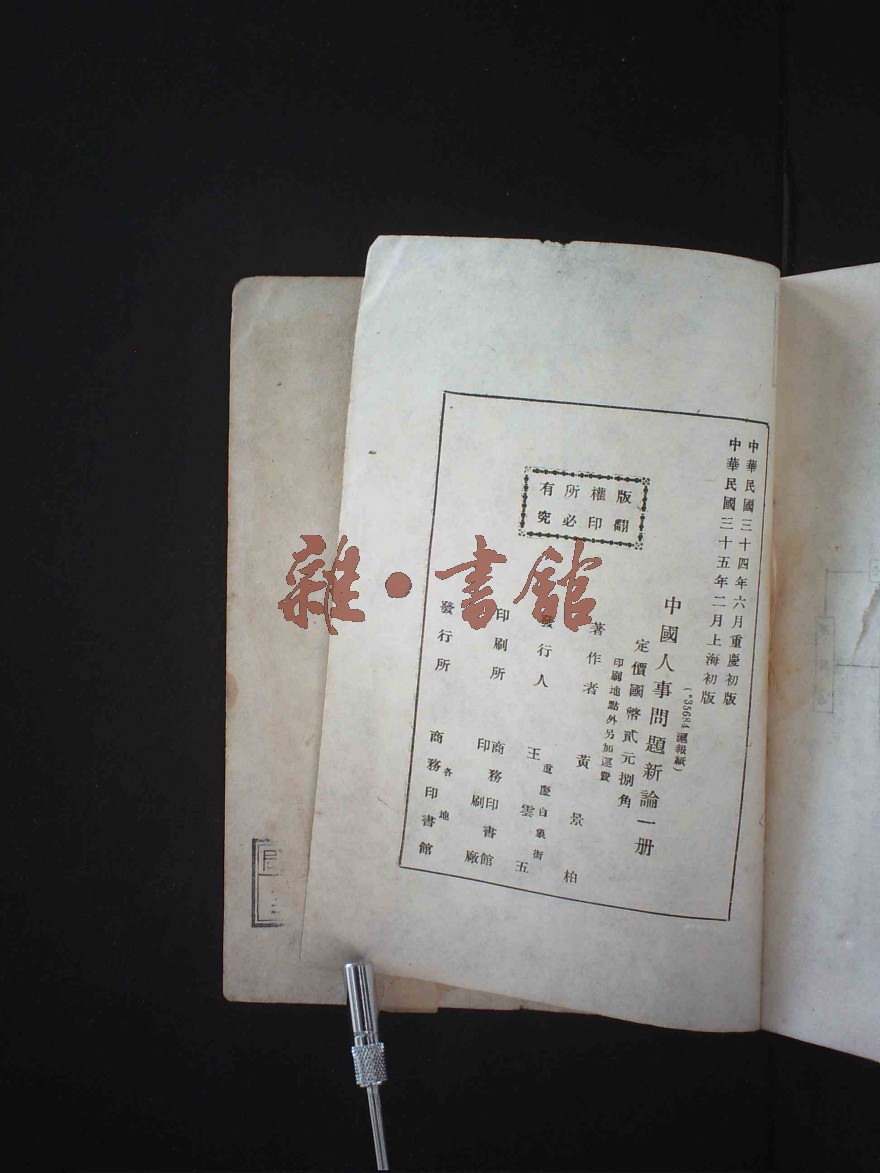 中華民國三十四年六月重慶初版
中華民國三十五年二月上海初版
(*35684滬報紙)
中國人事問題新論一册
定價國幣貳元捌角
印刷地點外另加運費
版權所有
翻印必究
著作者 黃景柏
發行人 王雲五
重慶白象街
印刷所 商務印書館
印刷廠
發行所 各地
商務印書館
雜·書館